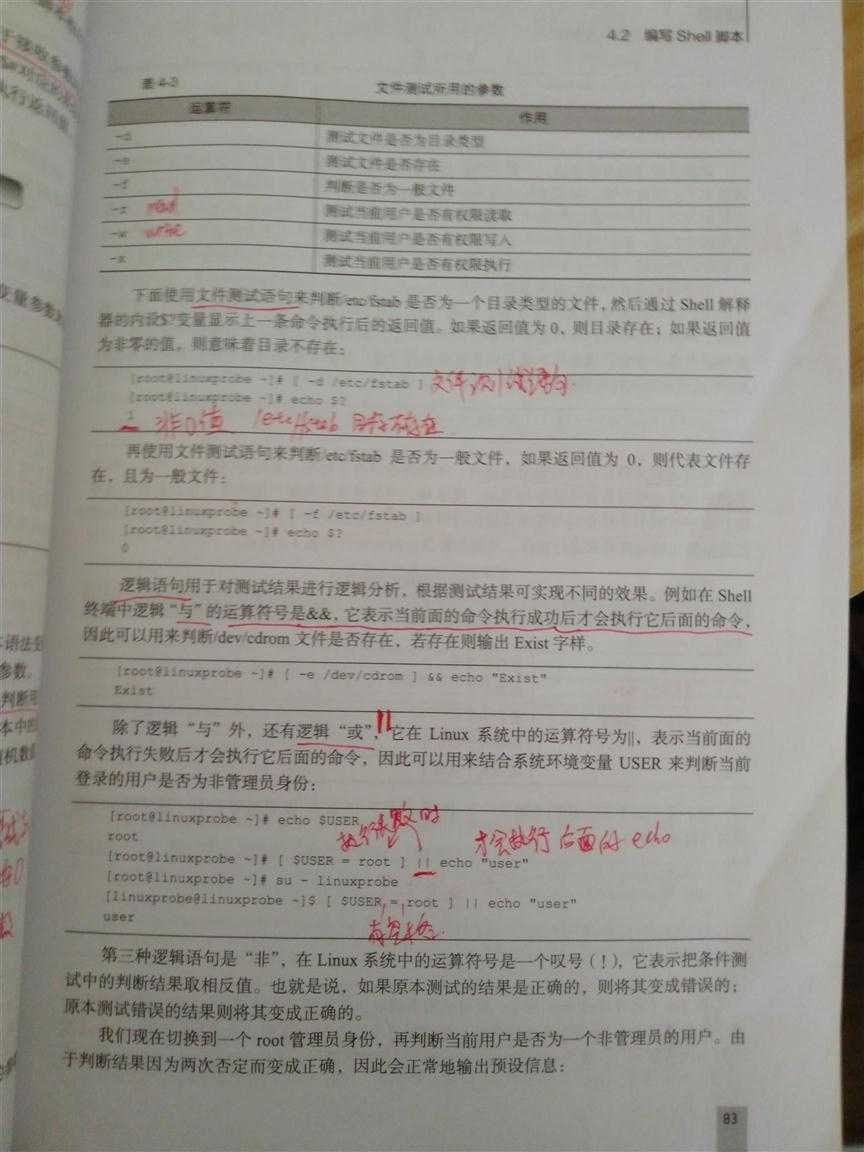 4.2 编写 Shell 脚本
表 4-3 文件测试所用的参数
运算符 作用
-d 测试文件是否为目录类型
-e 测试文件是否存在
-f 判断是否为一般文件
-r read 测试当前用户是否有权限读取
-w write 测试当前用户是否有权限写入
-x 测试当前用户是否有权限执行
下面使用文件测试语句来判断/etc/fstab 是否为一个目录类型的文件，然后通过 Shell 解释
器的内设$?变量显示上一条命令执行后的返回值。如果返回值为 0，则目录存在；如果返回值
为非零的值，则意味着目录不存在：
[root@linuxprobe ~]# [ -d /etc/fstab ] 文件测试语句
[root@linuxprobe ~]# echo $?
1 非0值 /etc/fstab 目录不存在
再使用文件测试语句来判断/etc/fstab 是否为一般文件，如果返回值为 0，则代表文件存
在，且为一般文件：
[root@linuxprobe ~]# [ -f /etc/fstab ]
[root@linuxprobe ~]# echo $?
0
逻辑语句用于对测试结果进行逻辑分析，根据测试结果可实现不同的效果。例如在 Shell
终端中逻辑“与”的运算符号是&&，它表示当前面的命令执行成功后才会执行它后面的命令，
因此可以用来判断/dev/cdrom 文件是否存在，若存在则输出 Exist 字样。
[root@linuxprobe ~]# [ -e /dev/cdrom ] && echo "Exist"
Exist
除了逻辑“与”外，还有逻辑“或”，它在 Linux 系统中的运算符号为||，表示当前面的
命令执行失败后才会执行它后面的命令，因此可以用来结合系统环境变量 USER 来判断当前
登录的用户是否为非管理员身份：
[root@linuxprobe ~]# echo $USER
root 执行失败时 才会执行后面的 echo
[root@linuxprobe ~]# [ $USER = root ] || echo "user"
[root@linuxprobe ~]# su - linuxprobe
[linuxprobe@linuxprobe ~]$ [ $USER = root ] || echo "user"
user 有空格
第三种逻辑语句是“非”，在 Linux 系统中的运算符号是一个叹号（!），它表示把条件测
试中的判断结果取相反值。也就是说，如果原本测试的结果是正确的，则将其变成错误的；
原本测试错误的结果则将其变成正确的。
我们现在切换到一个 root 管理员身份，再判断当前用户是否为一个非管理员的用户。由
于判断结果因为两次否定而变成正确，因此会正常地输出预设信息：
83